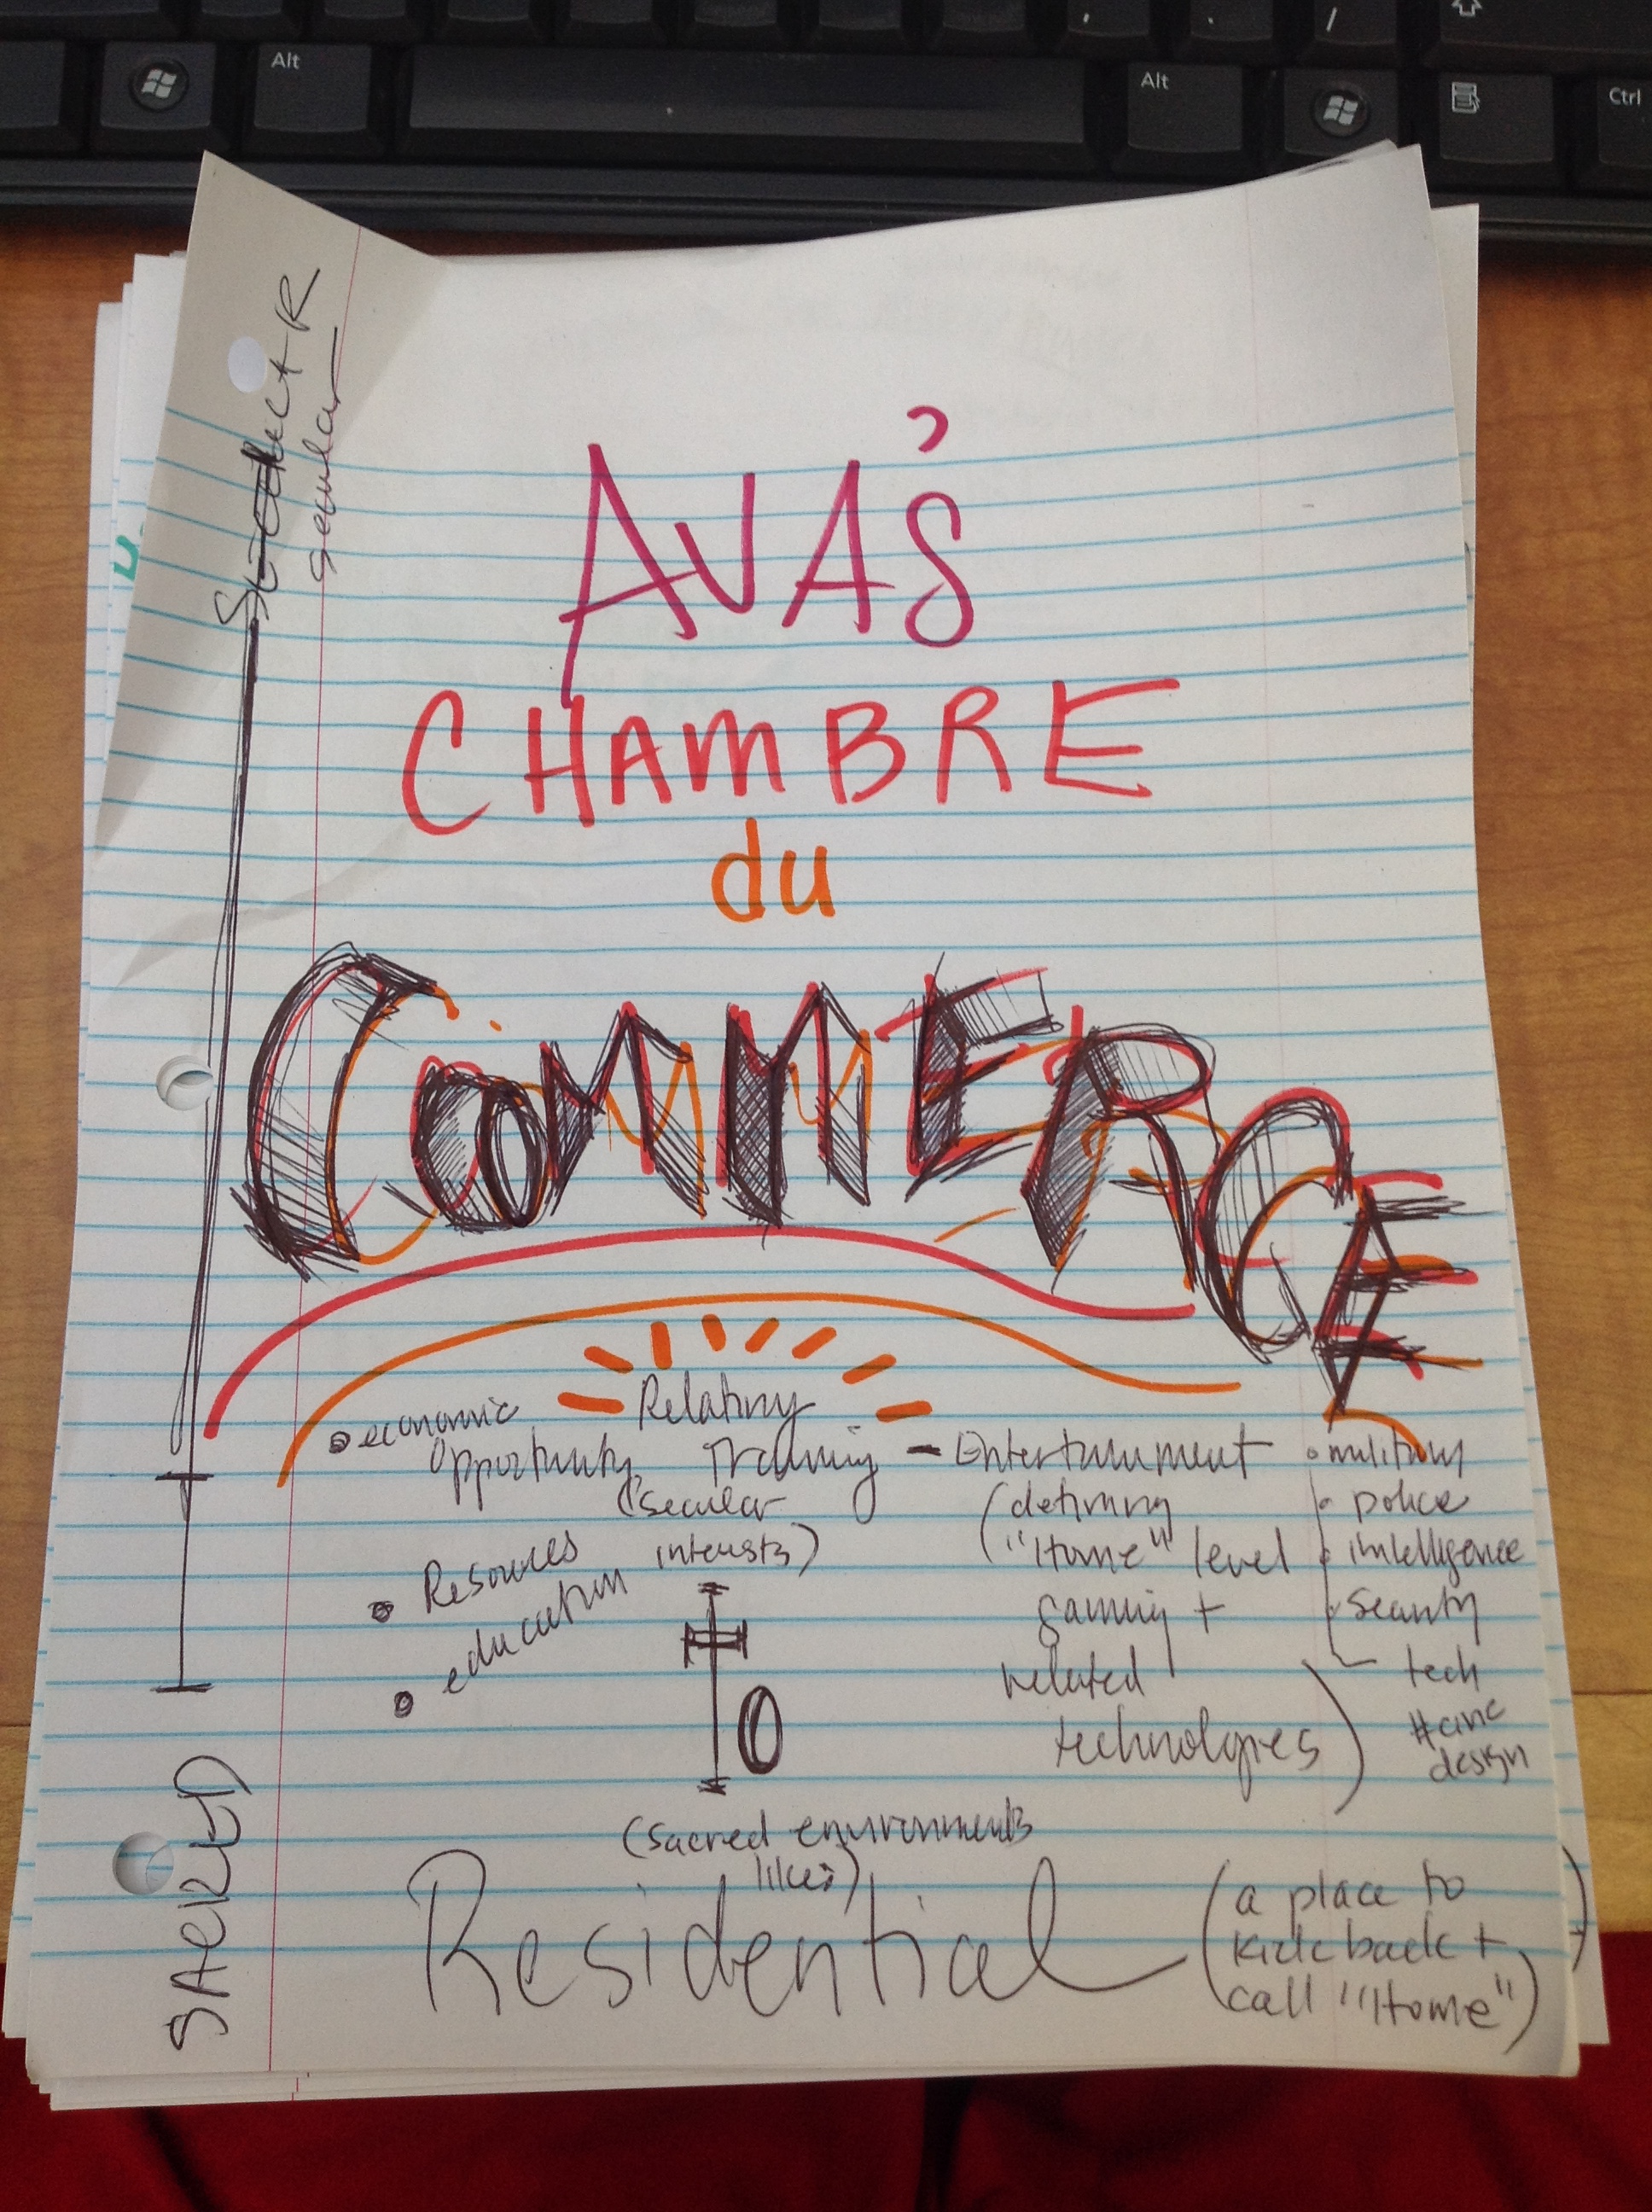 Alt
Alt
Ctrl
secular
AVA'S
CHAMBRE
du
COMMERCE
Relating
• economic
opportunity
Training – Entertainment
(secular
interests)
(defining
"Home" level
gaming +
related
technologies)
• military
• police
• intelligence
• security
tech
#civic
design
• Resources
• education
0
SACRED
(sacred environments
likes)
Residential
(a place to
kick back +
call "Home")